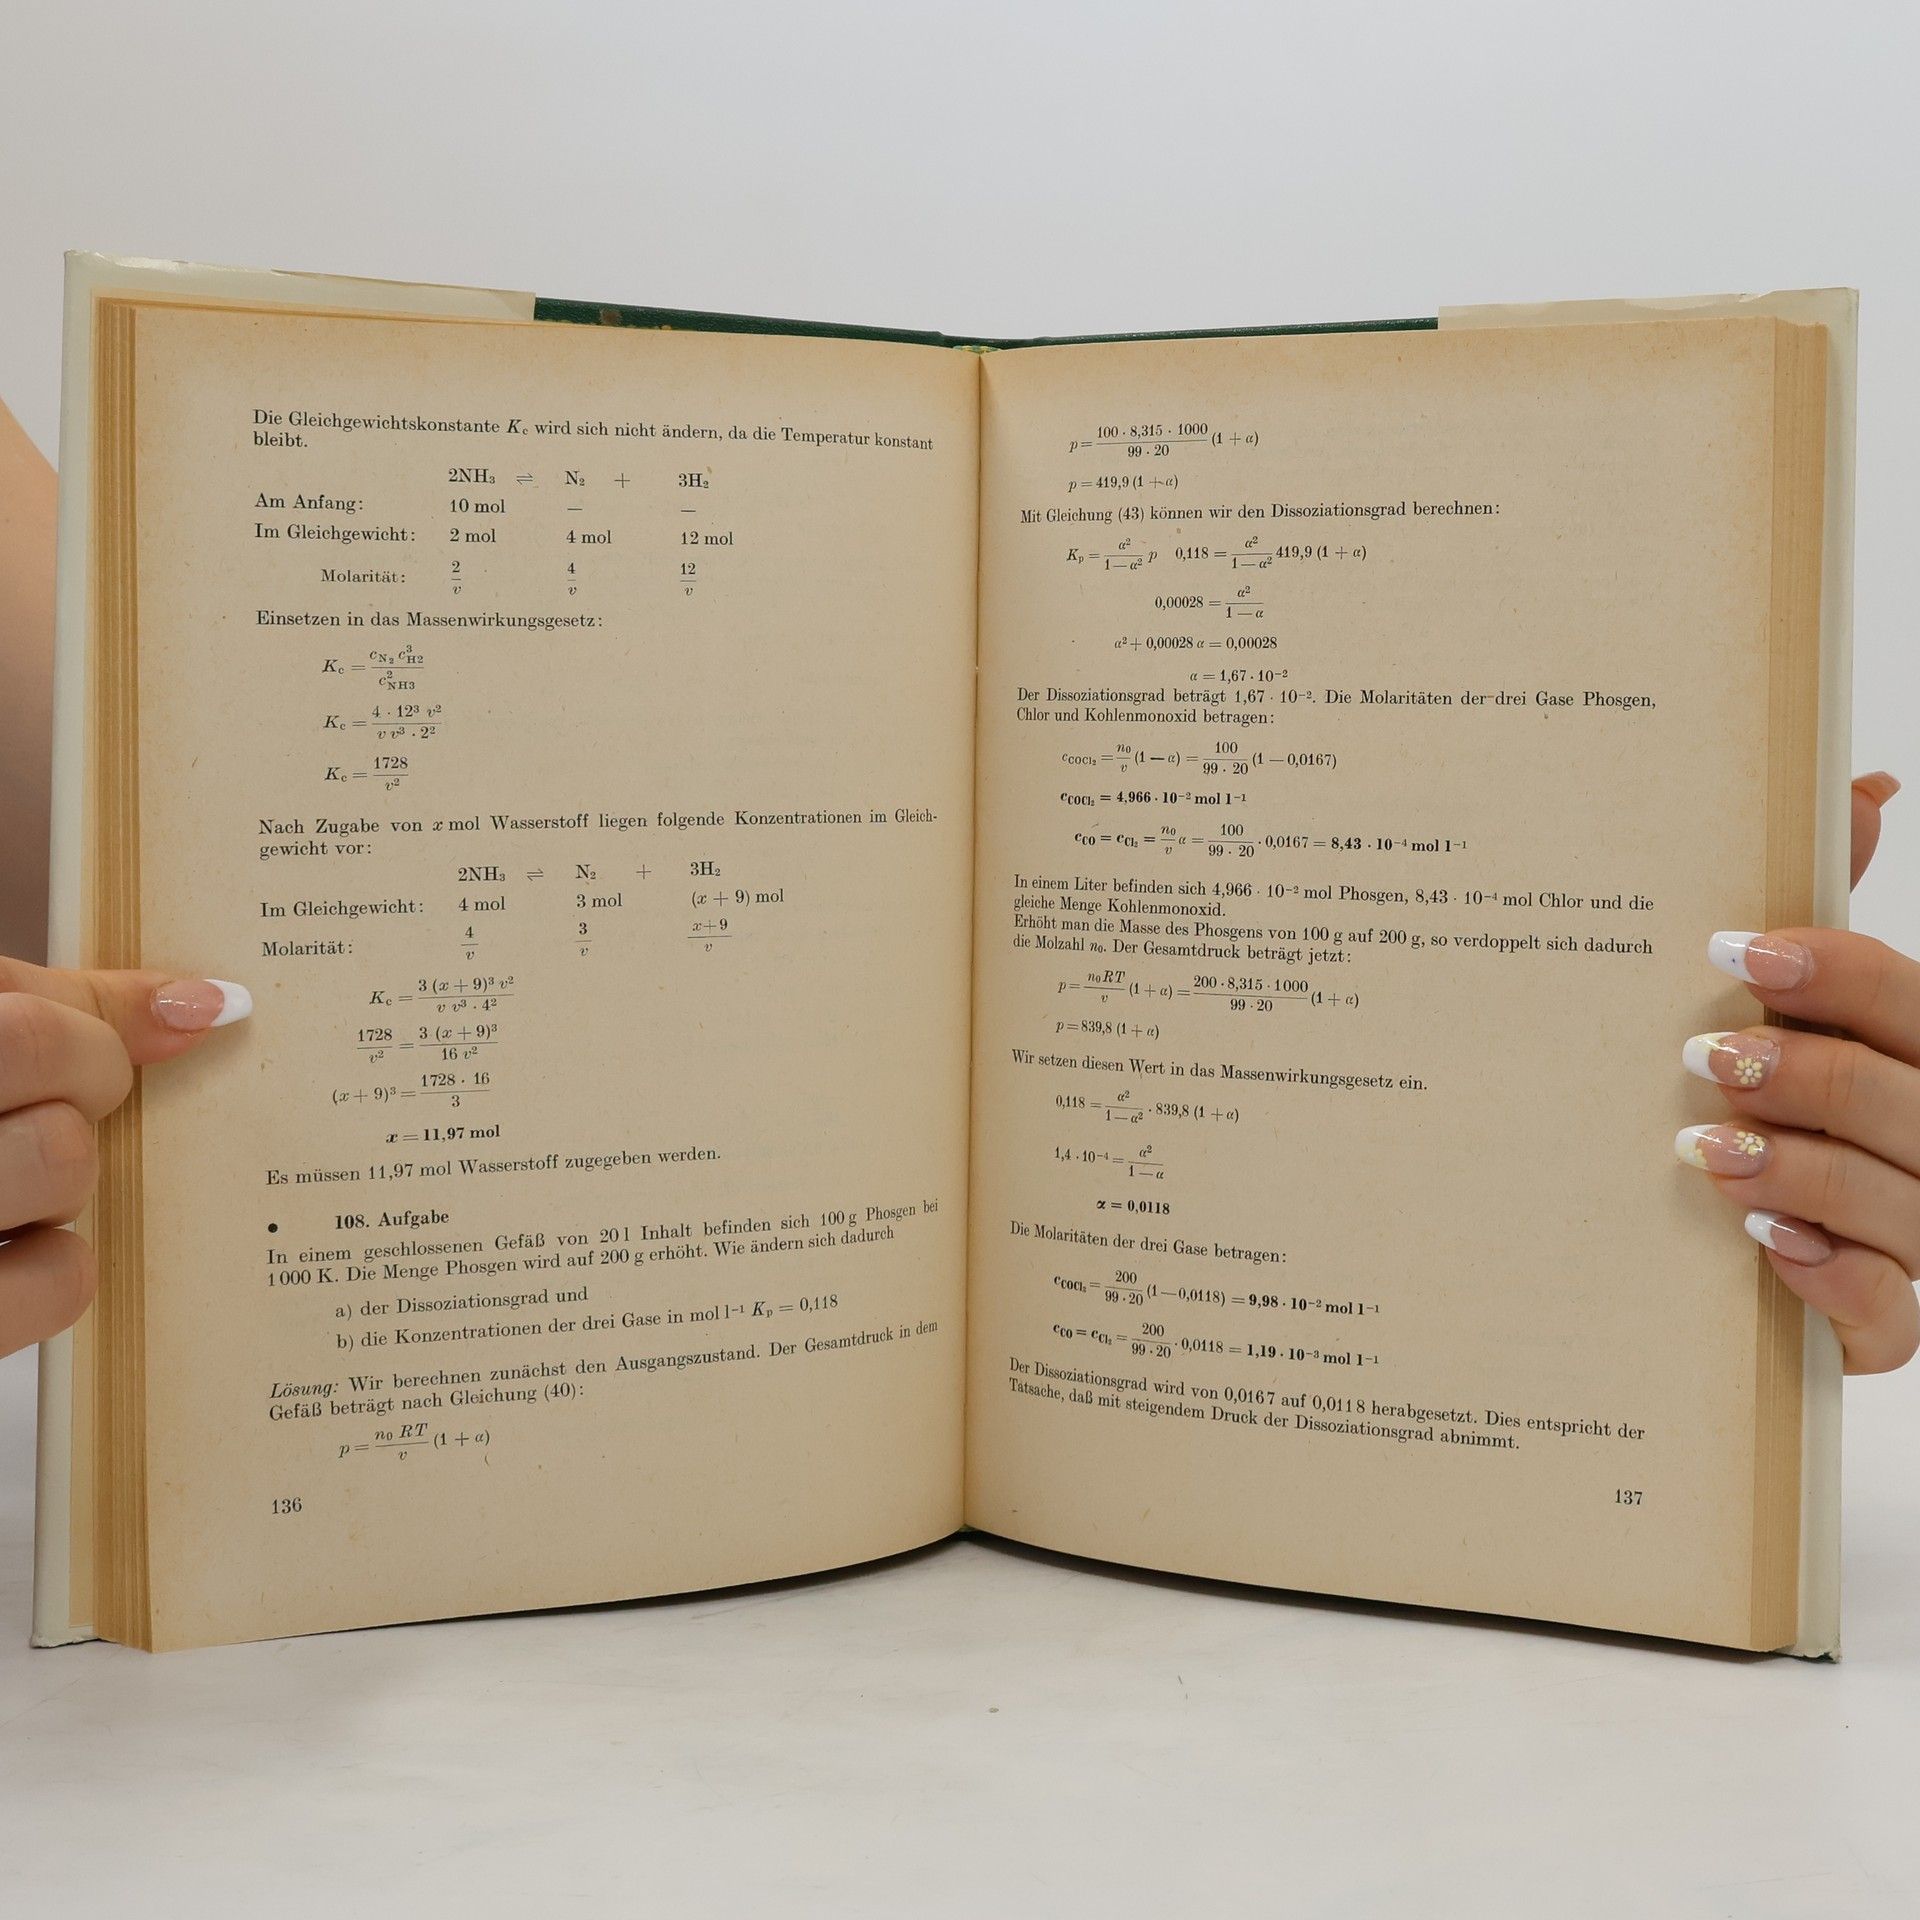 Die Gleichgewichtskonstante Kc wird sich nicht ändern, da die Temperatur konstant
bleibt.
2NH₃ ⇌ N₂ + 3H₂
Am Anfang: 10 mol — —
Im Gleichgewicht: 2 mol 4 mol 12 mol
Molarität: 2/v 4/v 12/v
Einsetzen in das Massenwirkungsgesetz:
Kc = cN₂ c³H2 / c²NH3
Kc = 4 · 12³ v² / v v³ · 2²
Kc = 1728 / v²
Nach Zugabe von x mol Wasserstoff liegen folgende Konzentrationen im Gleich-
gewicht vor:
2NH₃ ⇌ N₂ + 3H₂
Im Gleichgewicht: 4 mol 3 mol (x + 9) mol
Molarität: 4/v 3/v x+9/v
Kc = 3 (x + 9)³ v² / v v³ · 4²
1728 / v² = 3 (x + 9)³ / 16 v²
(x + 9)³ = 1728 · 16 / 3
x = 11,97 mol
Es müssen 11,97 mol Wasserstoff zugegeben werden.
● 108. Aufgabe
In einem geschlossenen Gefäß von 20 l Inhalt befinden sich 100 g Phosgen bei
1000 K. Die Menge Phosgen wird auf 200 g erhöht. Wie ändern sich dadurch
a) der Dissoziationsgrad und
b) die Konzentrationen der drei Gase in mol l⁻¹ Kp = 0,118
Lösung: Wir berechnen zunächst den Ausgangszustand. Der Gesamtdruck in dem
Gefäß beträgt nach Gleichung (40):
p = n₀ RT / v (1 + α)
136
p = 100 · 8,315 · 1000 / 99 · 20 (1 + α)
p = 419,9 (1 + α)
Mit Gleichung (43) können wir den Dissoziationsgrad berechnen:
Kp = α² / 1 — α² p 0,118 = α² / 1 — α² 419,9 (1 + α)
0,00028 = α² / 1 — α
α² + 0,00028 α = 0,00028
α = 1,67 · 10⁻²
Der Dissoziationsgrad beträgt 1,67 · 10⁻². Die Molaritäten der drei Gase Phosgen,
Chlor und Kohlenmonoxid betragen:
cCOCl₂ = n₀/v (1 — α) = 100 / 99 · 20 (1 — 0,0167)
cCOCl₂ = 4,966 · 10⁻² mol l⁻¹
cCO = cCl₂ = n₀/v α = 100 / 99 · 20 · 0,0167 = 8,43 · 10⁻⁴ mol l⁻¹
In einem Liter befinden sich 4,966 · 10⁻² mol Phosgen, 8,43 · 10⁻⁴ mol Chlor und die
gleiche Menge Kohlenmonoxid.
Erhöht man die Masse des Phosgens von 100 g auf 200 g, so verdoppelt sich dadurch
die Molzahl n₀. Der Gesamtdruck beträgt jetzt:
p = n₀RT / v (1 + α) = 200 · 8,315 · 1000 / 99 · 20 (1 + α)
p = 839,8 (1 + α)
Wir setzen diesen Wert in das Massenwirkungsgesetz ein.
0,118 = α² / 1 — α² · 839,8 (1 + α)
1,4 · 10⁻⁴ = α² / 1 — α
α = 0,0118
Die Molaritäten der drei Gase betragen:
cCOCl₂ = 200 / 99 · 20 (1 — 0,0118) = 9,98 · 10⁻² mol l⁻¹
cCO = cCl₂ = 200 / 99 · 20 · 0,0118 = 1,19 · 10⁻³ mol l⁻¹
Der Dissoziationsgrad wird von 0,0167 auf 0,0118 herabgesetzt. Dies entspricht der
Tatsache, daß mit steigendem Druck der Dissoziationsgrad abnimmt.
137